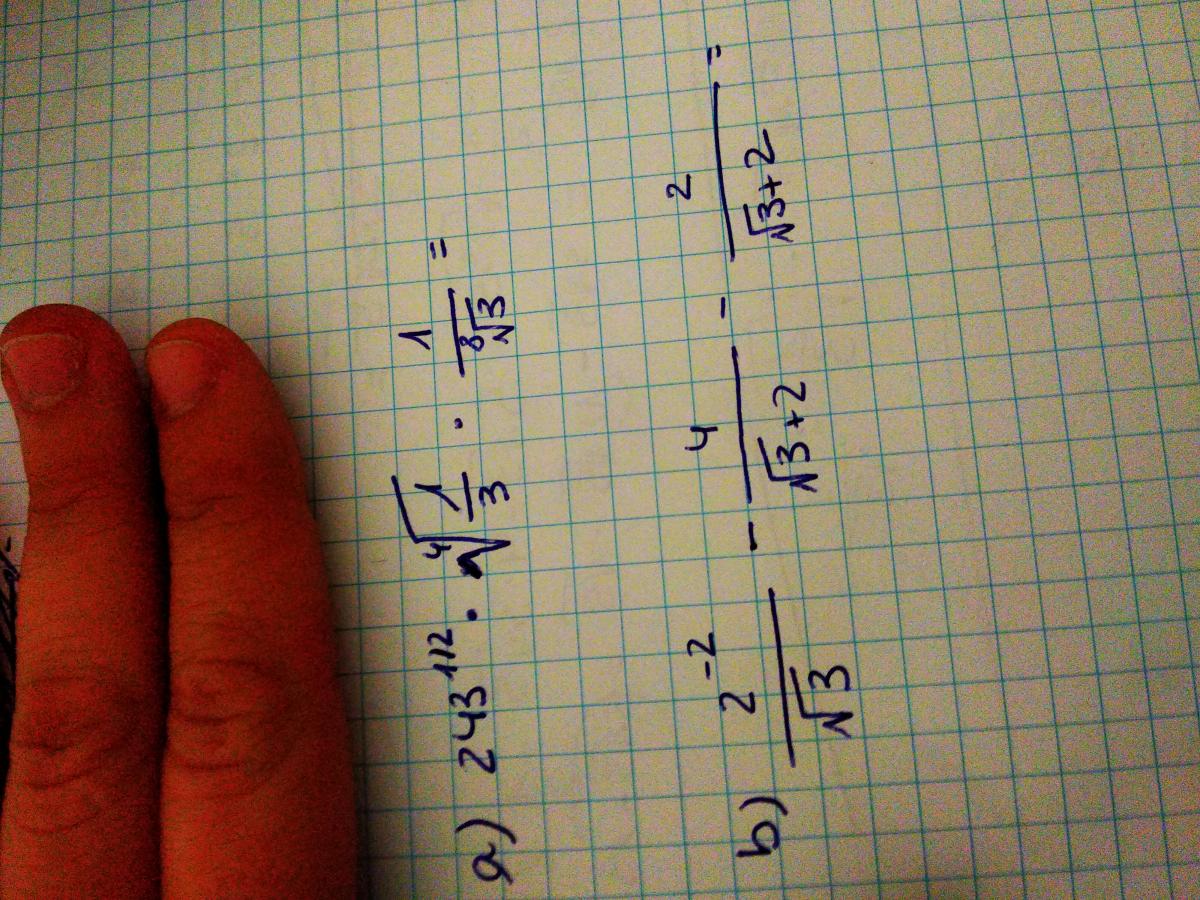 a) 243^{1/2} · \sqrt[4]{\frac{1}{3}} · \frac{1}{\sqrt[8]{3}} =
b) \frac{2^{-2}}{\sqrt{3}} - \frac{4}{\sqrt{3}+2} - \frac{2}{\sqrt{3}+2} =